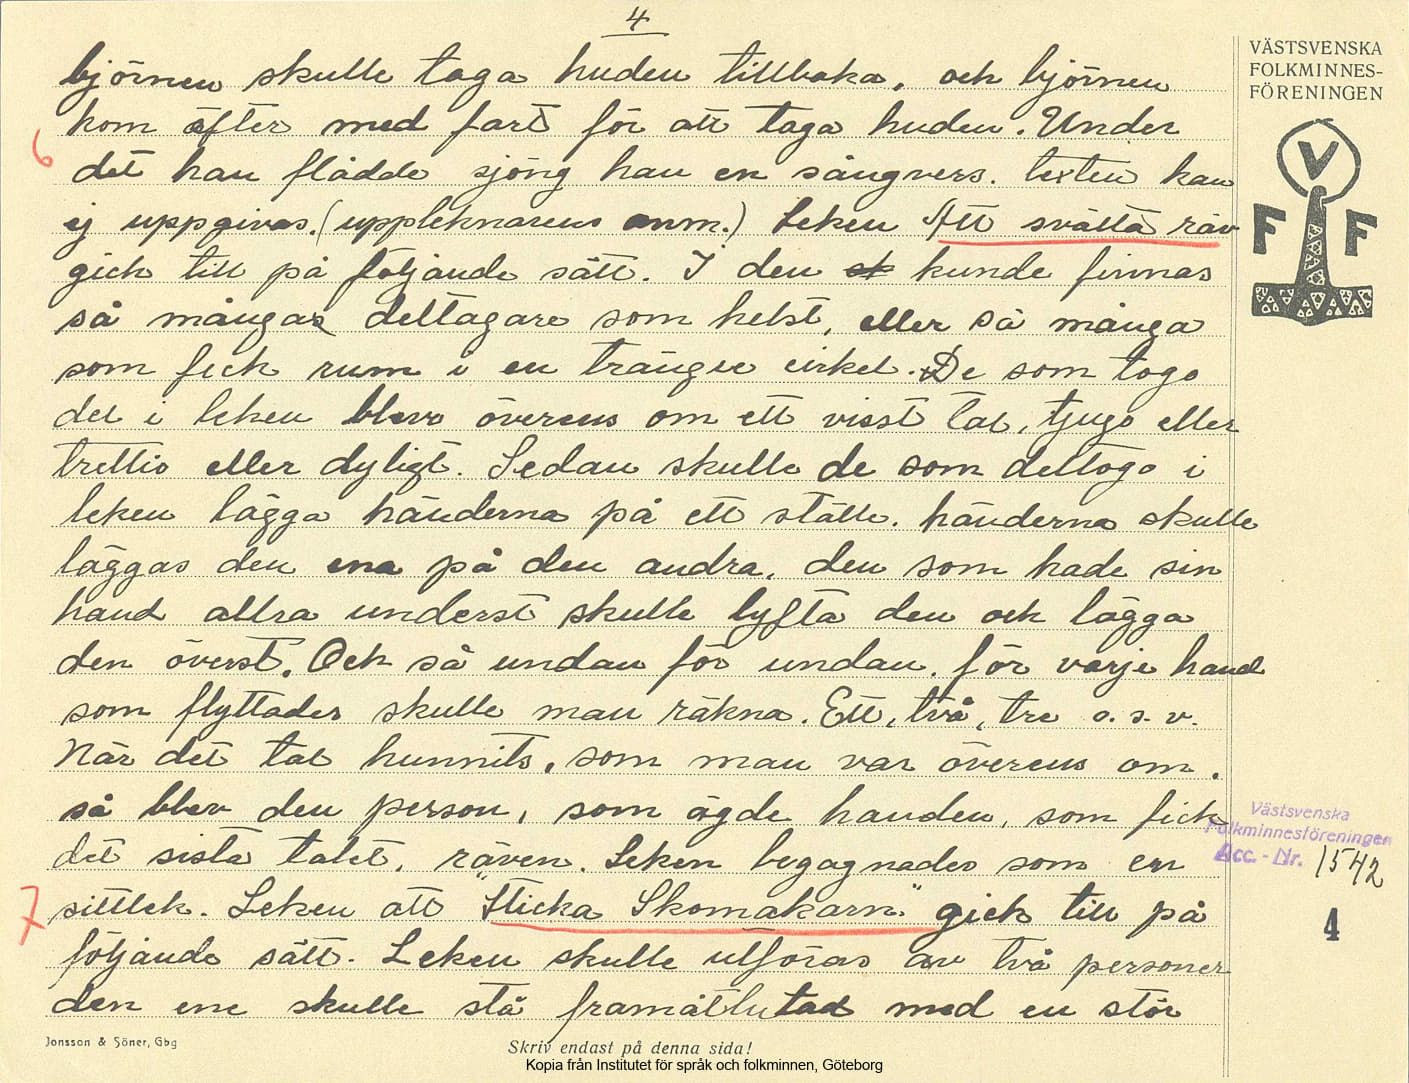 4
björnen skulle taga huden tillbaka, och björnen
kom äfter med fart för att taga huden. Under
6
det han flådde sjöng han en sångvers. texten kan
ej uppgivas. (uppteknarens anm.) Leken Att svälta räv
gick till på följande sätt. I den kunde finnas
så mångas deltagare som helst, eller så många
som fick rum i en trängre cirkel. De som togo
del i leken blevo överens om ett visst tal, tjugo eller
trettio eller dyligt. Sedan skulle de som deltogo i
leken lägga händerna på ett ställe. händerna skulle
läggas den ena på den andra, den som hade sin
hand allra underst skulle lyfta den och lägga
den överst. Och så undan för undan. för varje hand
som flyttades skulle man räkna. Ett, två, tre o. s. v.
När det tal hunnits, som man var överens om,
så blev den person, som ägde handen, som fick
det sista talet, räven. Leken begagnades som en
7
sittlek. Leken att "Sticka Skomakarn" gick till på
följande sätt. Leken skulle utföras av två personer
den ene skulle stå framåtlutad med en stör
Jonsson & Söner, Gbg
Skriv endast på denna sida!
Kopia från Institutet för språk och folkminnen, Göteborg
VÄSTSVENSKA
FOLKMINNES-
FÖRENINGEN
V
F F
Västsvenska
Folkminnesföreningen
Acc. - Nr. 1542
4